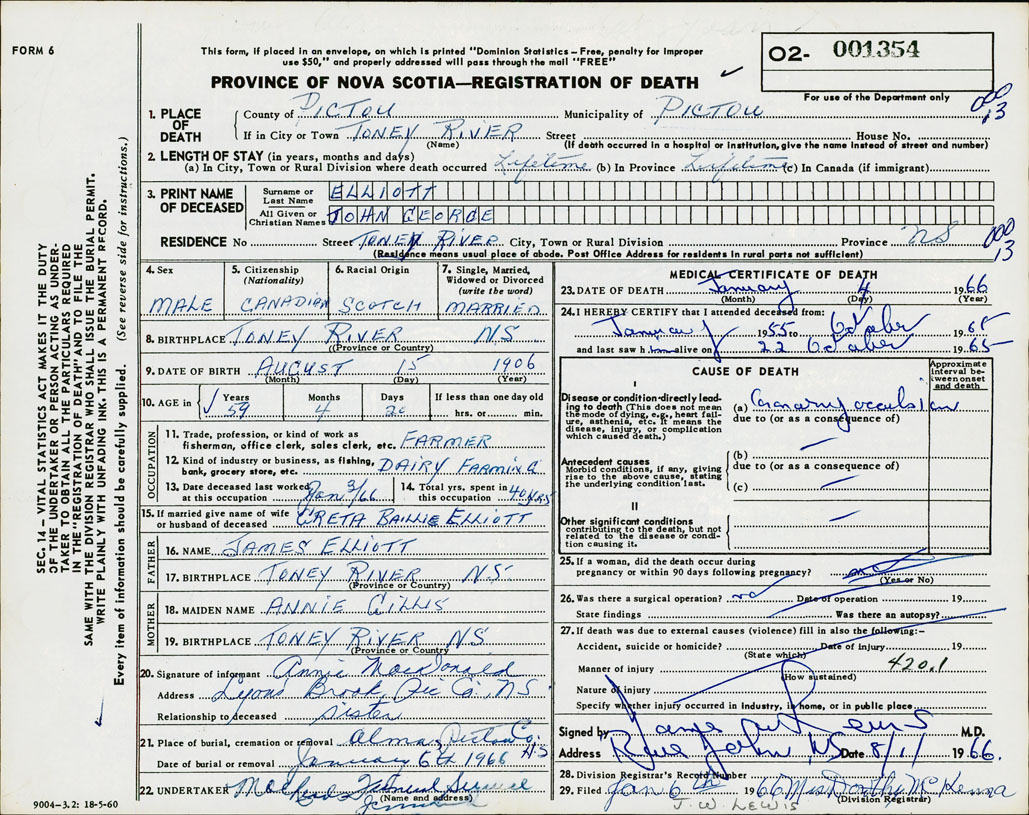 FORM 6
This form, if placed in an envelope, on which is printed "Dominion Statistics – Free, penalty for improper
use $50," and properly addressed will pass through the mail "FREE"
O2- 001354
For use of the Department only
PROVINCE OF NOVA SCOTIA—REGISTRATION OF DEATH
000
13
1. PLACE OF DEATH
County of PICTOU Municipality of PICTOU
If in City or Town TONEY RIVER Street House No.
(Name) (If death occurred in a hospital or institution, give the name instead of street and number)
2. LENGTH OF STAY (in years, months and days)
(a) In City, Town or Rural Division where death occurred Lifetime (b) In Province Lifetime (c) In Canada (if immigrant)
3. PRINT NAME OF DECEASED
Surname or Last Name ELLIOTT
All Given or Christian Names JOHN GEORGE
RESIDENCE No Street TONEY RIVER City, Town or Rural Division Province NS
000
13
(Residence means usual place of abode. Post Office Address for residents in rural parts not sufficient)
4. Sex MALE
5. Citizenship (Nationality) CANADIAN
6. Racial Origin SCOTCH
7. Single, Married, Widowed or Divorced (write the word) MARRIED
8. BIRTHPLACE TONEY RIVER NS
(Province or Country)
9. DATE OF BIRTH AUGUST 15 1906
(Month) (Day) (Year)
10. AGE in Years 59 Months 4 Days 20 If less than one day old hrs. or min.
OCCUPATION
11. Trade, profession, or kind of work as
fisherman, office clerk, sales clerk, etc. FARMER
12. Kind of industry or business, as fishing,
bank, grocery store, etc. DAIRY FARMING
13. Date deceased last worked at this occupation Jan 3/66
14. Total yrs. spent in this occupation 40 YRS
15. If married give name of wife
or husband of deceased GRETA BAILLIE ELLIOTT
FATHER
16. NAME JAMES ELLIOTT
17. BIRTHPLACE TONEY RIVER NS
(Province or Country)
MOTHER
18. MAIDEN NAME ANNIE GILLIS
19. BIRTHPLACE TONEY RIVER NS
(Province or Country)
20. Signature of informant Annie MacDonald
Address Lyons Brook, Pic Co, NS
Relationship to deceased sister
21. Place of burial, cremation or removal Alma Pictou Co. NS
Date of burial or removal January 6th 1966
22. UNDERTAKER
(Name and address)
MEDICAL CERTIFICATE OF DEATH
23. DATE OF DEATH January 4 1966
(Month) (Day) (Year)
24. I HEREBY CERTIFY that I attended deceased from:
January 1955 to October 1965
and last saw him alive on 22 October 1965
CAUSE OF DEATH
Approximate interval between onset and death
I
Disease or condition directly leading to death (This does not mean the mode of dying, e.g., heart failure, asthenia, etc. It means the disease, injury, or complication which caused death.)
(a) Coronary occlusion
due to (or as a consequence of)
Antecedent causes
Morbid conditions, if any, giving rise to the above cause, stating the underlying condition last.
(b) —
due to (or as a consequence of)
(c) —
II
Other significant conditions
contributing to the death, but not related to the disease or condition causing it.
—
25. If a woman, did the death occur during
pregnancy or within 90 days following pregnancy?
(Yes or No)
26. Was there a surgical operation? no Date of operation 19
State findings Was there an autopsy?
27. If death was due to external causes (violence) fill in also the following:–
Accident, suicide or homicide? Date of injury 19
(State which)
Manner of injury 420.1
(How sustained)
Nature of injury
Specify whether injury occurred in industry, in home, or in public place
Signed by James W Lewis M.D.
Address River John, NS Date 8/1/ 1966.
28. Division Registrar's Record Number
29. Filed Jan 6th 1966 Miss Dorothy McKenna
(Division Registrar)
J. W. LEWIS
SEC. 14 – VITAL STATISTICS ACT MAKES IT THE DUTY
OF THE UNDERTAKER OR PERSON ACTING AS UNDER-
TAKER TO OBTAIN ALL THE PARTICULARS REQUIRED
IN THE "REGISTRATION OF DEATH" AND TO FILE THE
SAME WITH THE DIVISION REGISTRAR WHO SHALL ISSUE THE BURIAL PERMIT.
WRITE PLAINLY WITH UNFADING INK. THIS IS A PERMANENT RECORD.
Every item of information should be carefully supplied. (See reverse side for instructions.)
9004-3.2: 18-5-60